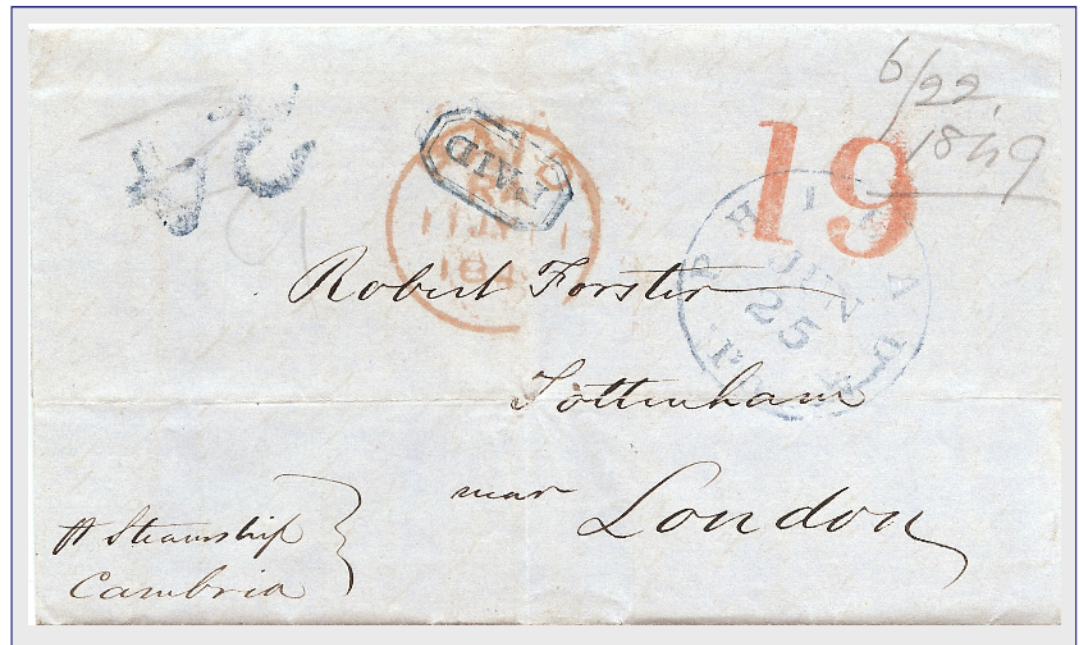 6/22.
1849
24
PAID
19
PHILADA
JUN
25
Robert Forster
Tottenham
near
London
Steamship
Cambria